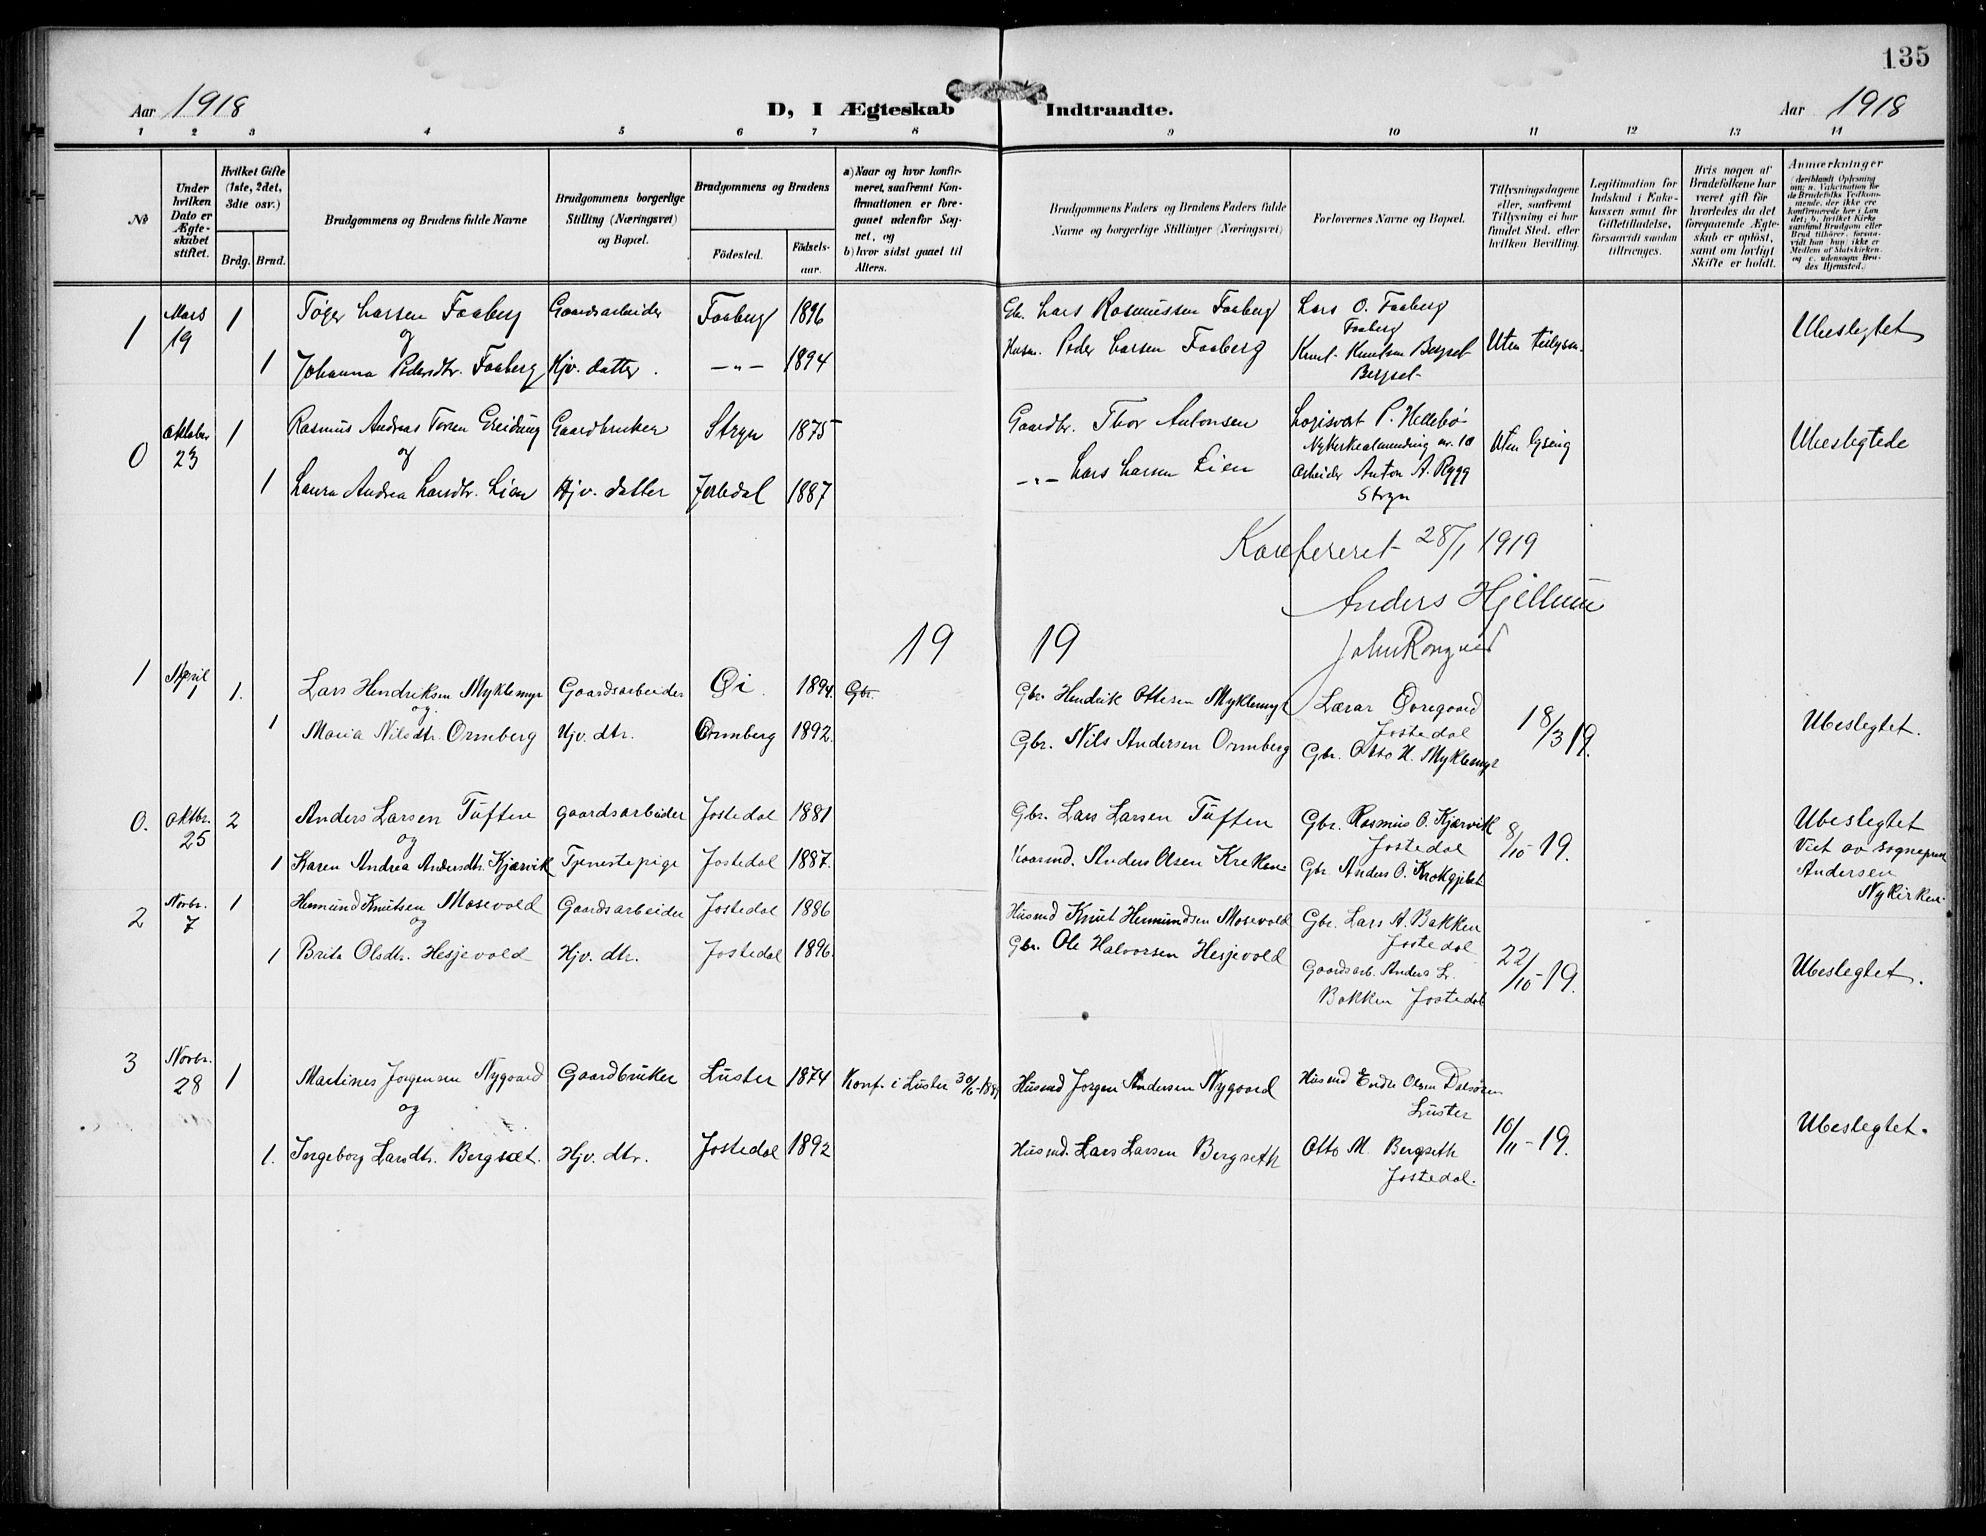 135
Aar 1918 D, I Ægteskab Indtraadte. Aar 1918
1 2 3 4 5 6 7 8 9 10 11 12 13 14
No
Under hvilken Dato er Ægteskabet stiftet.
Hvilket Gifte (1ste, 2det, 3die osv.)
Brdg. Brud.
Brudgommens og Brudens fulde Navne
Brudgommens borgerlige Stilling (Næringsvei) og Bopæl.
Brudgommens og Brudens
Födested. Födselsaar.
a) Naar og hvor konfirmeret, saafremt Konfirmationen er foregaaet udenfor Sognet, og
b) hvor sidst gaaet til Alters.
Brudgommens Faders og Brudens Faders fulde Navne og borgerlige Stillinger (Næringsvei)
Forlovernes Navne og Bopæl.
Tillysningsdagene eller, saafremt Tillysning ei har fundet Sted, efter hvilken Bevilling.
Legitimation for Indskud i Enkekassen samt for Giftetilladelse, forsaavidt saadan tiltrænges.
Hvis nogen af Brudefolkene har været gift før hvorledes da det foregaaende Ægteskab er oplöst, samt om lovligt Skifte er holdt.
Anmærkninger
1 Mars 19 1 Tøger Larsen Faaberg Gaardsarbeider Faaberg 1896 Gbr. Lars Rasmussen Faaberg Lars O. Faaberg
og Faaberg
1 Johanna Pedersdtr. Faaberg Hjv. datter. —"— 1894 Husm. Peder Larsen Faaberg Knut Knutsen Berset Uten Ubeslegtet
Berset
0 Oktober 23 1 Rasmus Andreas Greidung Gaardbruker Stryn 1875 Gaardbr. Thor Antonsen P. Hellebø
og nr. 10 Uten lysing Ubeslegtede
1 Laura Andrea Larsdtr. Lien Hjv. datter Jostedal 1887 —"— Lars Larsen Lien Arbeider Anton A. Rygg
Stryn
Konfereret 28/1 1919
Anders Hjellum
19 19
1 April 1 1. Lars Hendriksen Myklemyr Gaardsarbeider Øi. 1894. Gbr. Gbr. Hendrik Ottesen Myklemyr Lærar Øvregaard
og. Jostedal
1 Maria Nilsdtr. Ormberg Hjv. dtr. Ormberg 1892. Gbr. Nils Andersen Ormberg Gbr. Otto H. Myklemyr 18/3 19. Ubeslegtet.
0. Oktbr. 25 2 Anders Larsen Tuften gaardsarbeider Jostedal 1881 Gbr. Lars Larsen Tuften Gbr. Rasmus O. Kjærvik Ubeslegtet
og Jostedal 8/10-19. Viet av sogneprest
1 Karen Andrea Andersdtr. Kjærvik Tjenestepige Jostedal 1887. Anders Olsen Kreken Gbr. Anders O. Krokgjelet Andersen
Nykirken.
2 Novbr. 7 1 Hermund Knutsen Mosevold Gaardsarbeider Jostedal 1886 Husmd Knut Hermundsen Mosevold Gbr. Lars A. Bakken
og Jostedal
1 Brita Olsdtr. Hesjevold Hjv. dtr. Jostedal 1896. Gbr. Ole Halvorsen Hesjevold Gaardsarb. Anders L. 22/10-19. Ubeslegtet.
Bakken Jostedal
3 Novbr. 28 1 Martines Jørgensen Nygaard Gaardbruker Luster 1874 Konf. i Luster 30/6- Husmd Jørgen Andersen Nygaard Husmd Endre Olsen Dalsøren
og Luster
1. Ingeborg Larsdtr. Bergsæt. Hjv. dtr. Jostedal 1892 Husmd. Lars Larsen Bergseth Otto M. Bergseth 10/11-19. Ubeslegtet.
Jostedal.